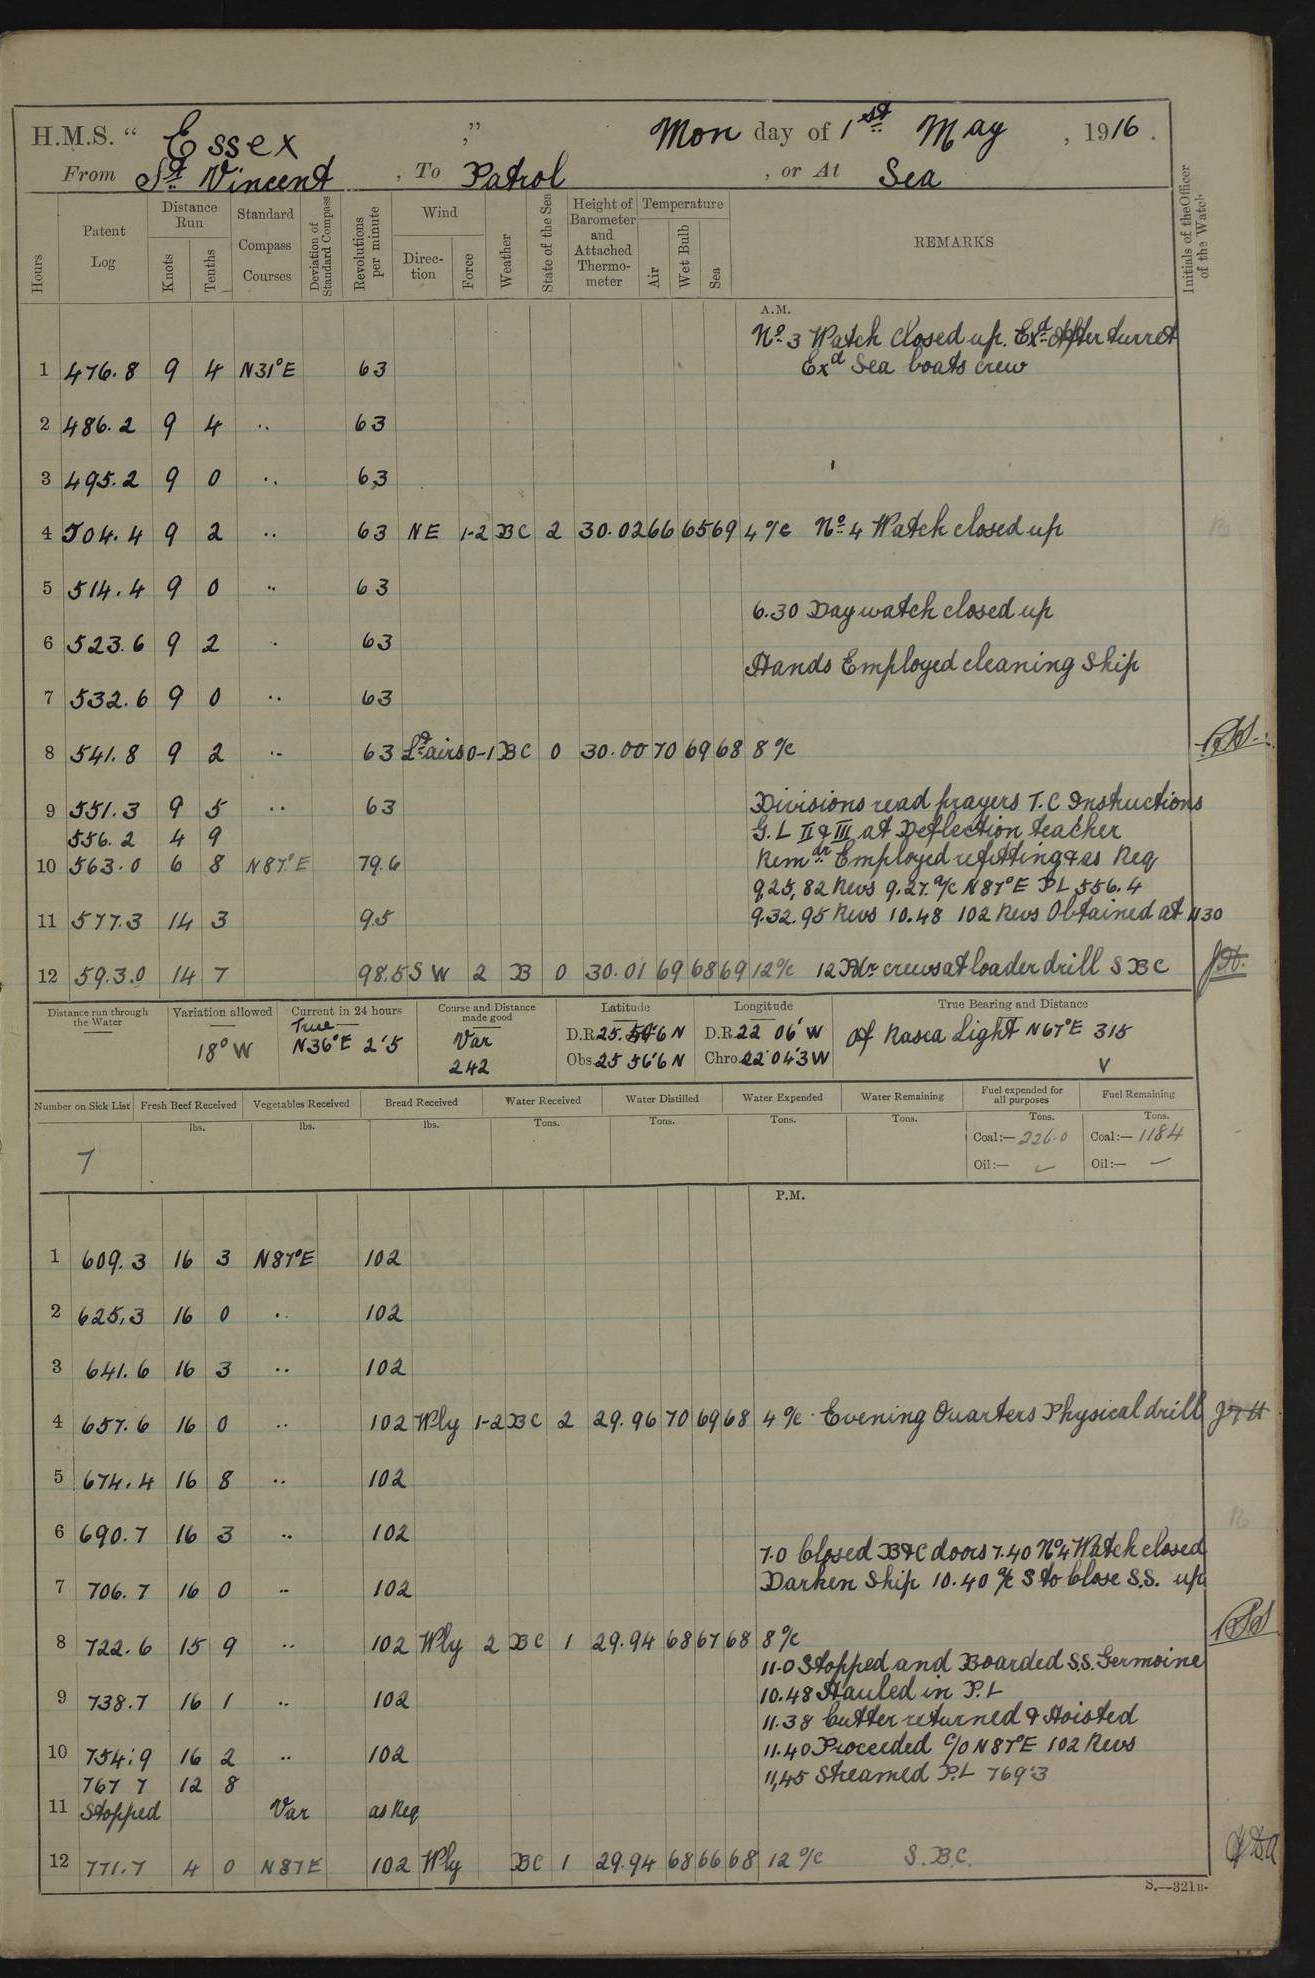 H.M.S. "Essex," Mon day of 1st May, 1916.
From St Vincent, To Patrol, or At Sea
Hours
Patent Log
Distance Run
Knots
Tenths
Standard Compass Courses
Deviation of Standard Compass
Revolutions per minute
Wind
Direction
Force
Weather
State of the Sea
Height of Barometer and Attached Thermometer
Temperature
Air
Wet Bulb
Sea
REMARKS
Initials of the Officer of the Watch
A.M.
No 3 Watch closed up. Exd After turret
1 476.8 9 4 N31°E 63 Exd Sea boats crew
2 486.2 9 4 .. 63
3 495.2 9 0 .. 63
4 504.4 9 2 .. 63 NE 1-2 BC 2 30.02 66 65 69 4 o/c No 4 Watch closed up
5 514.4 9 0 .. 63
6.30 Day watch closed up
6 523.6 9 2 . 63
Hands Employed cleaning Ship
7 532.6 9 0 .. 63
8 541.8 9 2 .. 63 Lt airs 0-1 BC 0 30.00 70 69 68 8 o/c
9 551.3 9 5 .. 63 Divisions read prayers T.C Instructions
556.2 4 9 G.L II & III at Deflection teacher
10 563.0 6 8 N87°E 79.6 Remdr Employed refitting & as Req
9,25, 82 Revs 9.27. a/c N87°E PL 556.4
11 577.3 14 3 95 9.32. 95 Revs 10.48 102 Revs Obtained at 1130
12 593.0 14 7 98.5 SW 2 B 0 30.01 69 68 69 12 o/c 12 Pdr crews at loader drill S B C
Distance run through the Water
Variation allowed
18° W
Current in 24 hours
True
N36°E 2'5
Course and Distance made good
Var
242
Latitude
D.R. 25. 54'6 N
Obs. 25 56'6 N
Longitude
D.R. 22 06' W
Chro. 22 04'3 W
True Bearing and Distance
Of Rasca Light N67°E 315
V
Number on Sick List
7
Fresh Beef Received
lbs.
Vegetables Received
lbs.
Bread Received
lbs.
Water Received
Tons.
Water Distilled
Tons.
Water Expended
Tons.
Water Remaining
Tons.
Fuel expended for all purposes
Tons.
Coal:— 226.0
Oil:— —
Fuel Remaining
Tons.
Coal:— 1184
Oil:— —
P.M.
1 609.3 16 3 N87°E 102
2 625.3 16 0 .. 102
3 641.6 16 3 .. 102
4 657.6 16 0 .. 102 Wly 1-2 BC 2 29.96 70 69 68 4 o/c. Evening Quarters Physical drill
5 674.4 16 8 .. 102
6 690.7 16 3 .. 102
7.0 Closed B & C doors 7.40 No 4 Watch closed
7 706.7 16 0 .. 102 Darken Ship 10.40 a/c S to close S.S. up
8 722.6 15 9 .. 102 Wly 2 BC 1 29.94 68 67 68 8 o/c
11.0 Stopped and Boarded S.S. Germoine
9 738.7 16 1 .. 102 10.48 Hauled in P.L
11.38 Cutter returned & Hoisted
10 754.9 16 2 .. 102 11.40 Proceeded C/o N87°E 102 Revs
767 7 12 8 11,45 Streamed P.L 769.3
11 Stopped Var as Req
12 771.7 4 0 N87E 102 Wly BC 1 29.94 68 66 68 12 o/c S.B.C.
S.—321B.